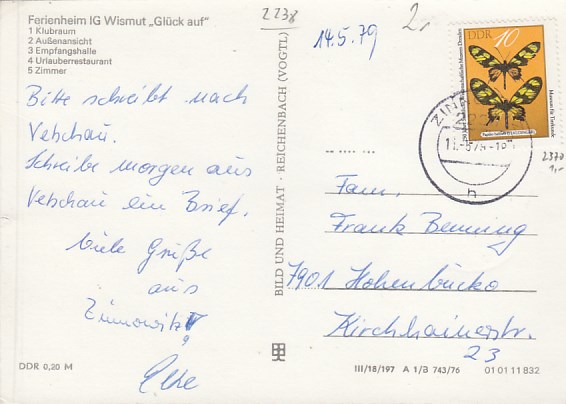 Ferienheim IG Wismut „Glück auf"
1 Klubraum
2 Außenansicht
3 Empfangshalle
4 Urlauberrestaurant
5 Zimmer
2238
2,-
14.5.79
Bitte schreibt nach
Vetschau.
Schreibe morgen aus
Vetschau ein Brief.
Viele Grüße
aus
Zinnowitz
DDR 0,20 M
BILD UND HEIMAT · REICHENBACH (VOGTL)
DDR 10
Museum für Tierkunde
2370
1,-
Fam.
Frank Benning
7901 Hohenbucko
Kirchhainerstr.
23
III/18/197 A 1/B 743/76 01 01 11 832